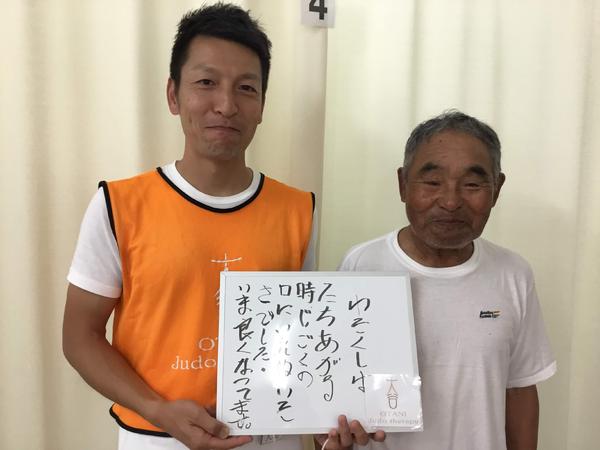 4
わたくしは
たちあがる
時じごくの
口にいえぬいた
さでした。
いま良くなってます。
OTANI
Judo therapy
OT
Judo